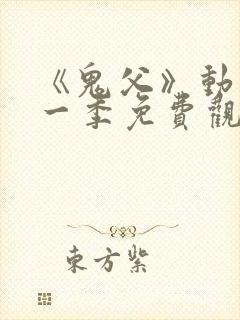 《鬼父》動
一季免費觀
東方紫